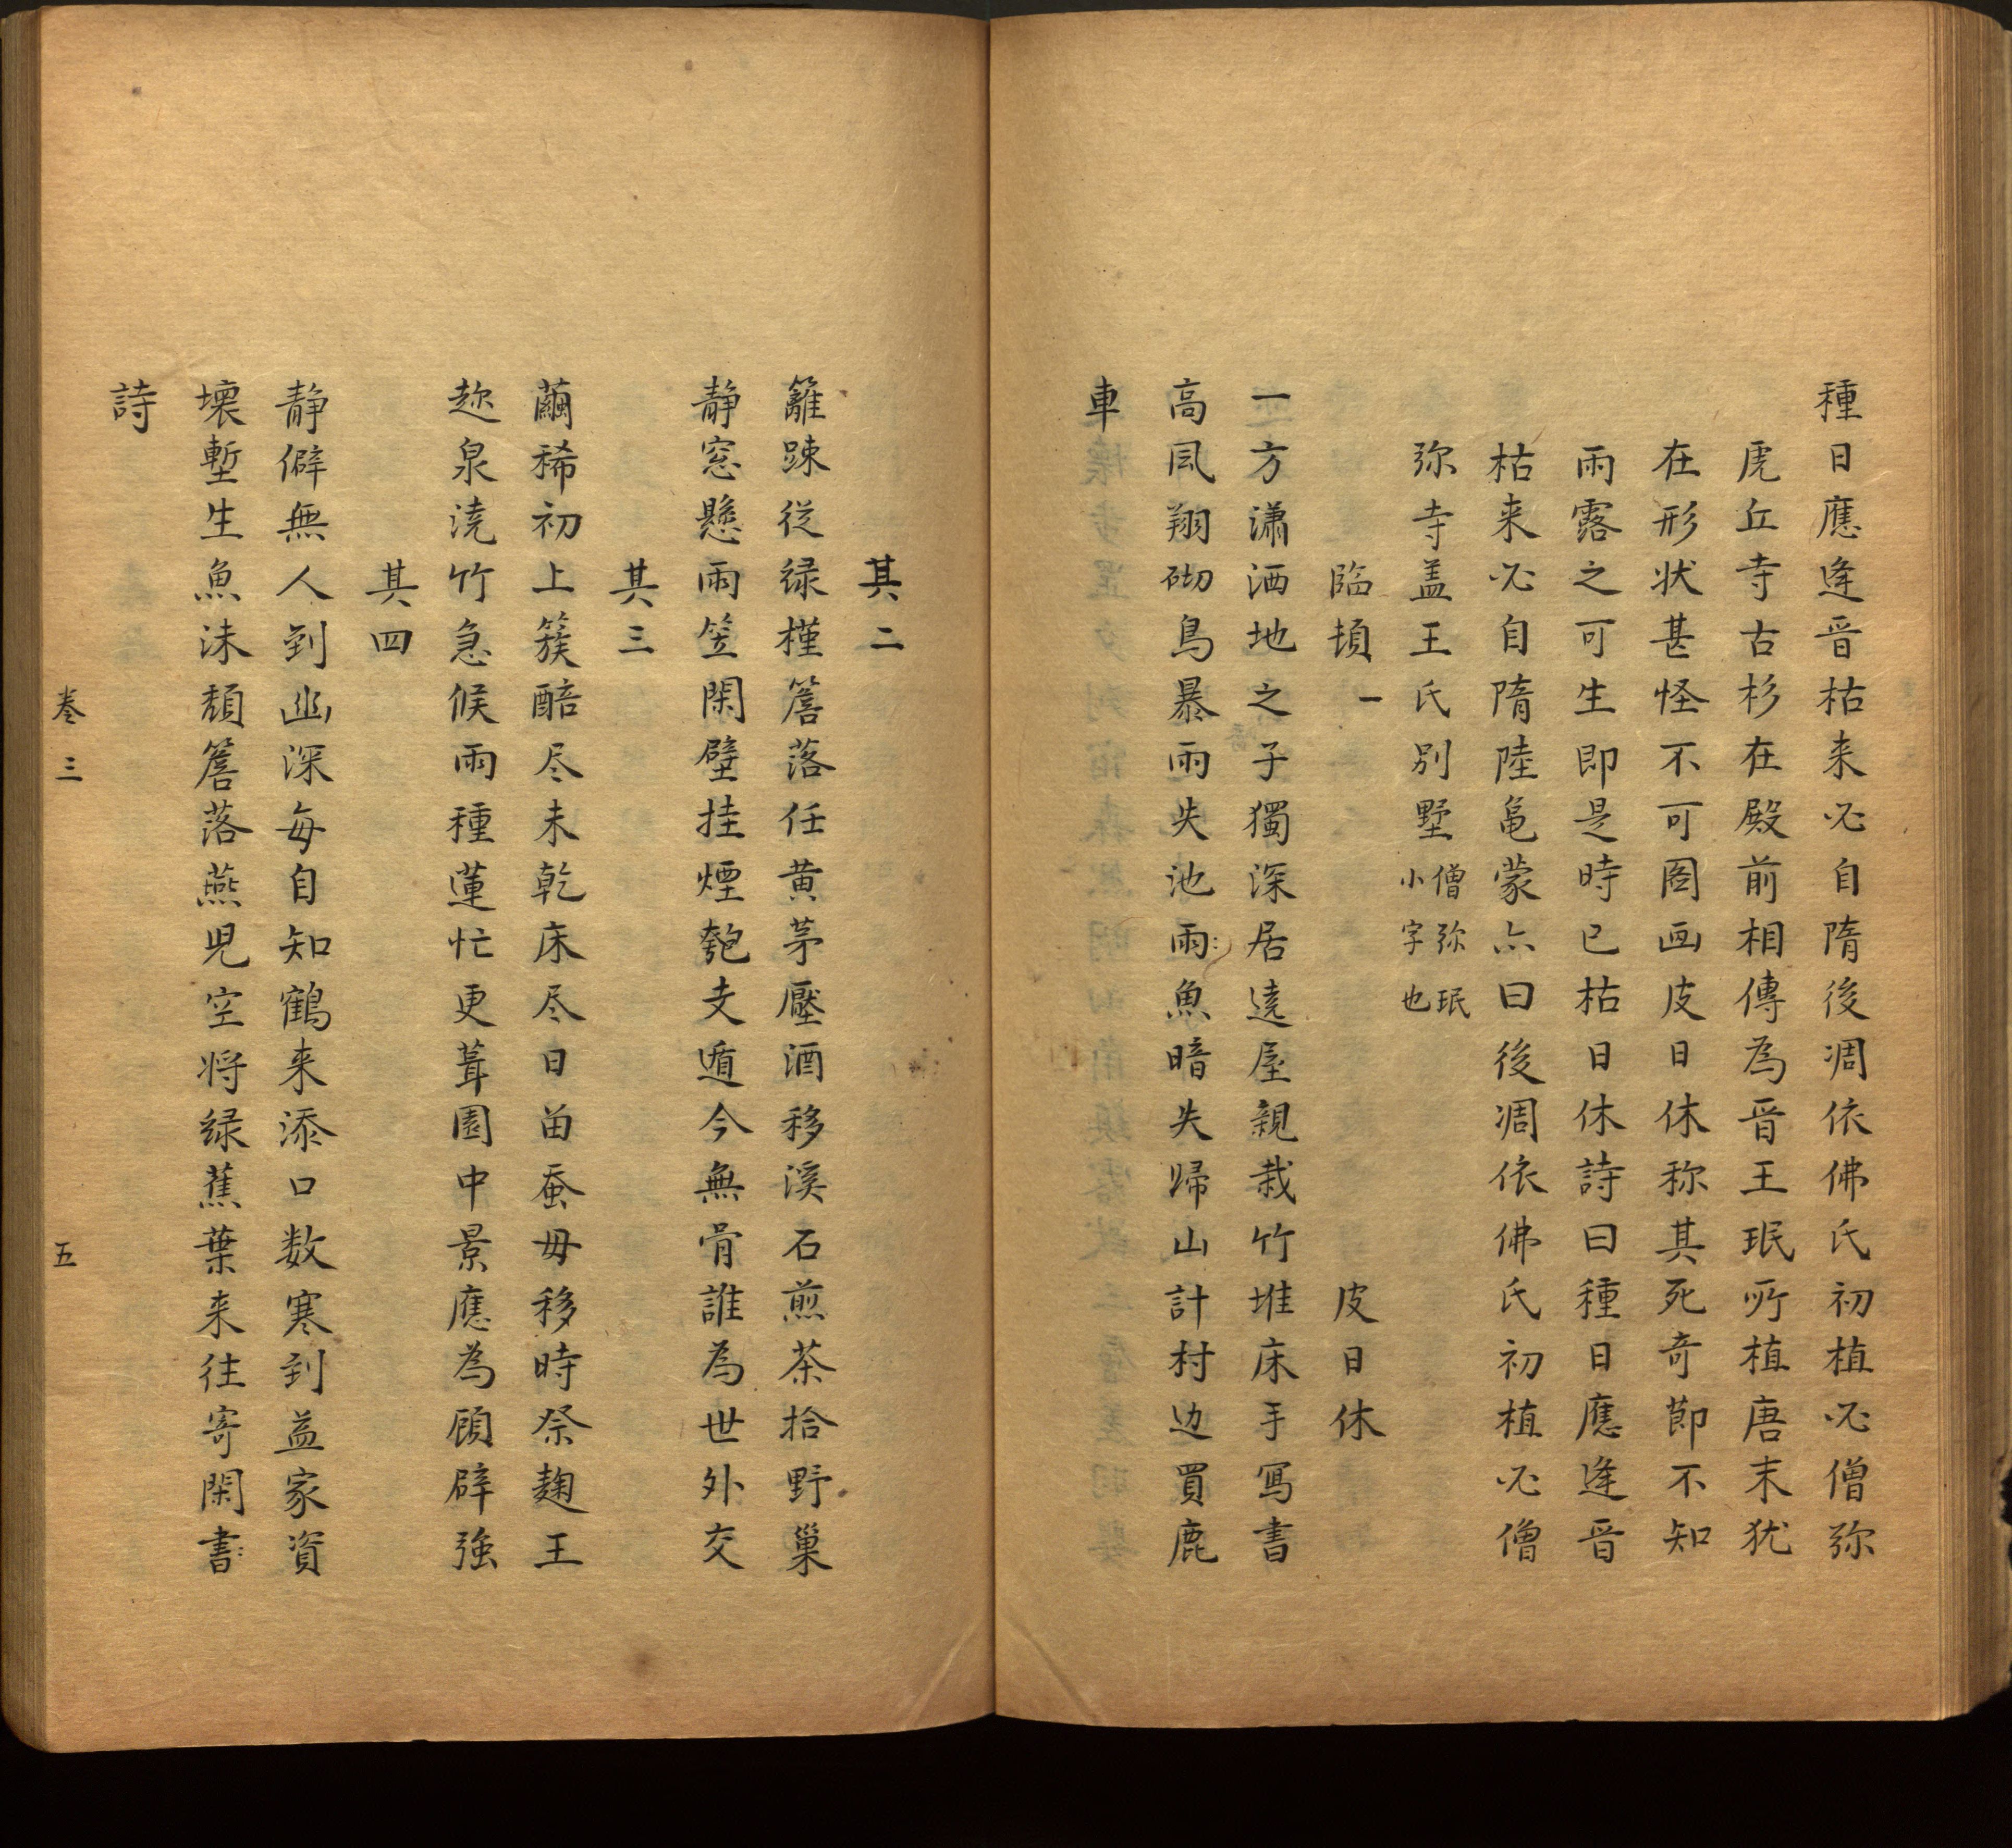 種日應逢晋枯来必自隋後凋依佛氏初植必僧弥
虎丘寺古杉在殿前相傳為晋王珉所植唐末犹
在形状甚怪不可圖画皮日休称其死奇節不知
雨露之可生即是時已枯日休詩曰種日應逢晋
枯来必自隋陸龜蒙亦曰後凋依佛氏初植必僧
弥寺盖王氏別墅僧弥珉小字也
臨頓一 皮日休
一方潇洒地之子獨深居遶屋親栽竹堆床手写書
高風翔砌鳥暴雨失池雨魚暗失歸山計村边買鹿
車
其二
籬踈從緑槿簷落任黄茅壓酒移溪石煎茶拾野巢
静窓懸雨笠閑壁挂煙匏支遁今無骨誰為世外交
其三
繭稀初上簇醅尽未乾床尽日畄蚕毋移時祭麹王
趂泉浇竹急候雨種蓮忙更葺園中景應為顧辟強
其四
静僻無人到幽深每自知鶴来添口数寒到益家資
壞塹生魚沫頽簷落燕児空将緑蕉葉来往寄閑書
詩
卷三 五